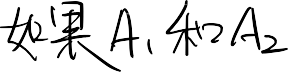 如果A₁和A₂